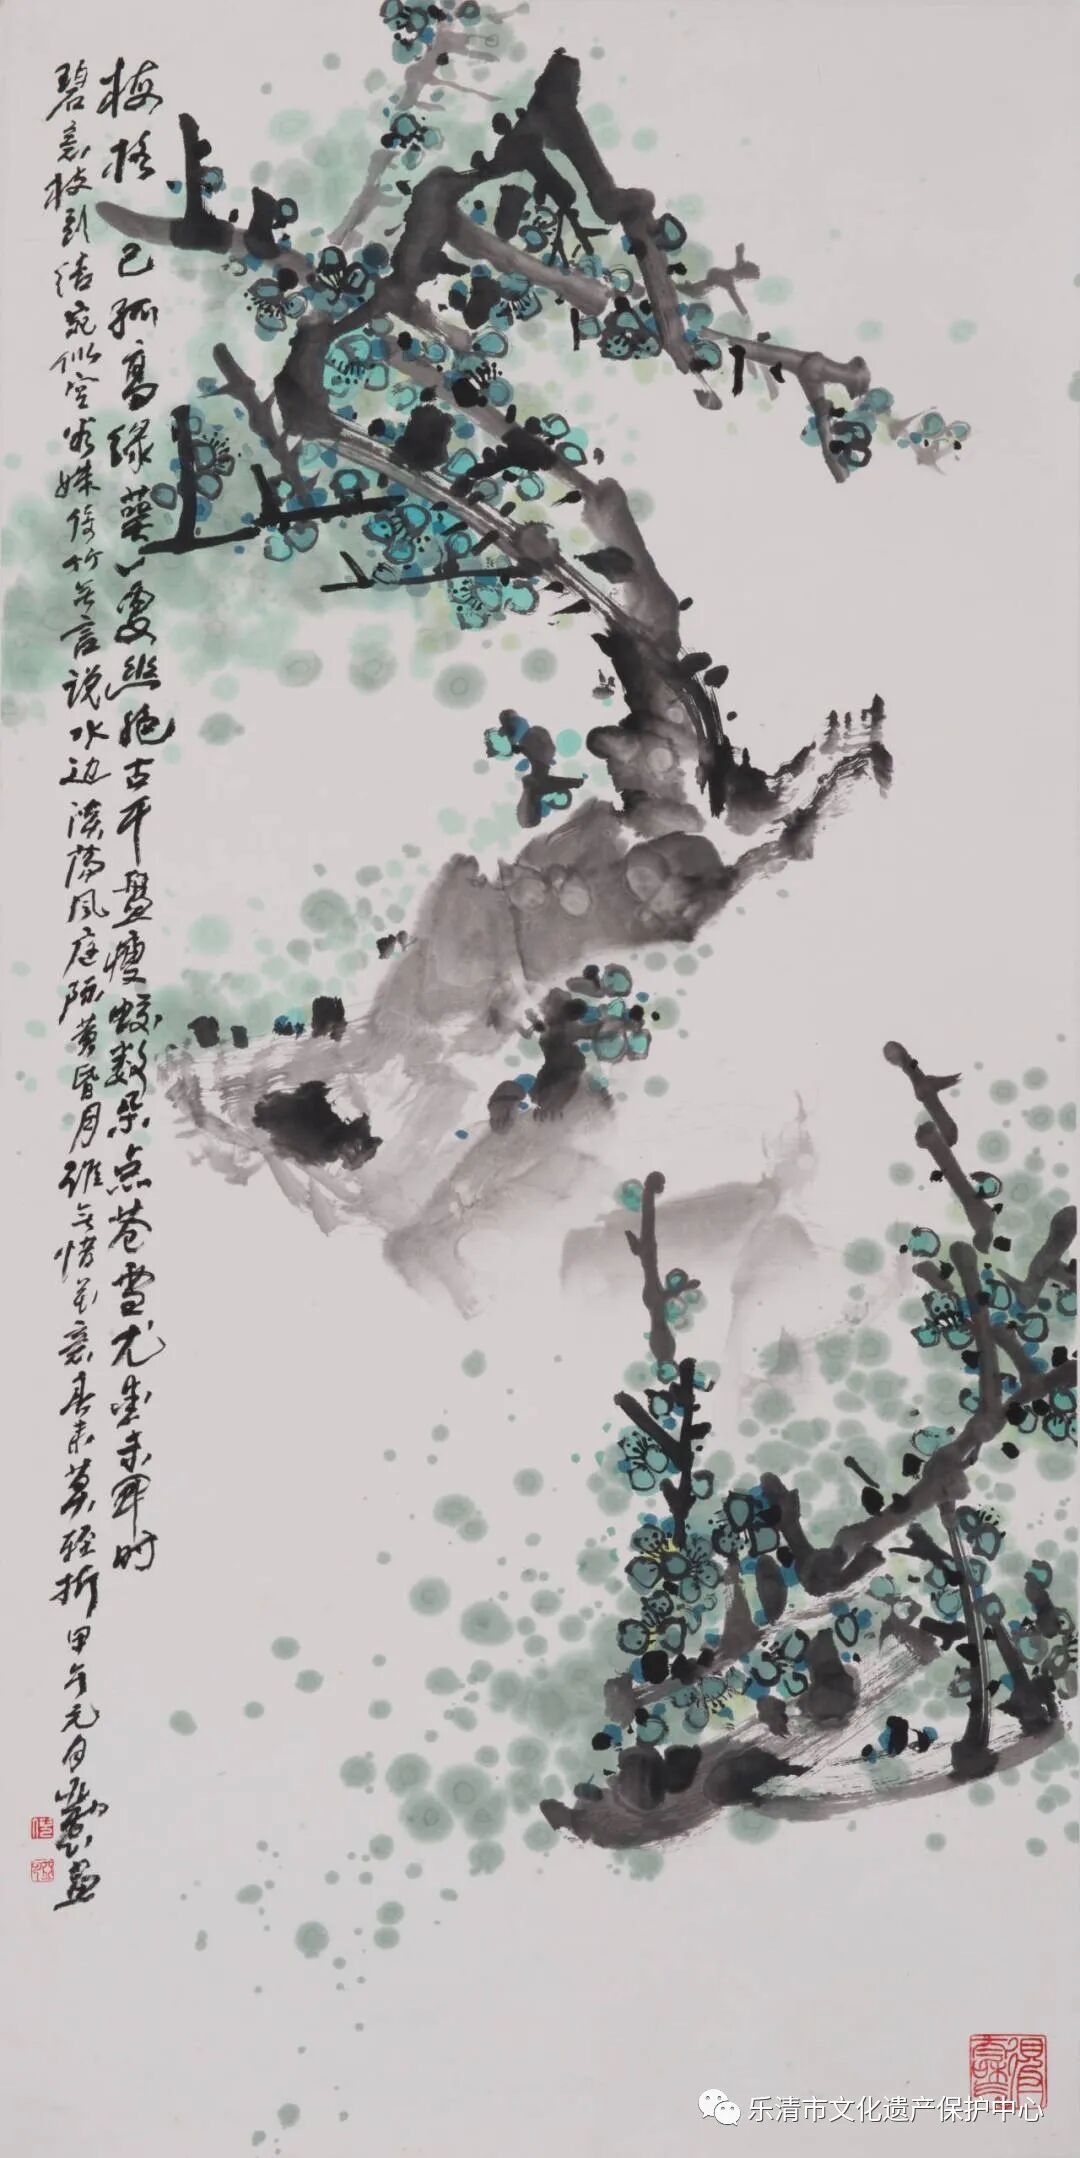 梅格已孤高绿萼更幽绝古干盘瘦蛟数朵点苍雪尤爱未开时
碧意枝头结宛似空谷姝倚竹无言说水边淡荡风庭际黄昏月谁与惜花意春来莫轻折甲午元月画
乐清市文化遗产保护中心